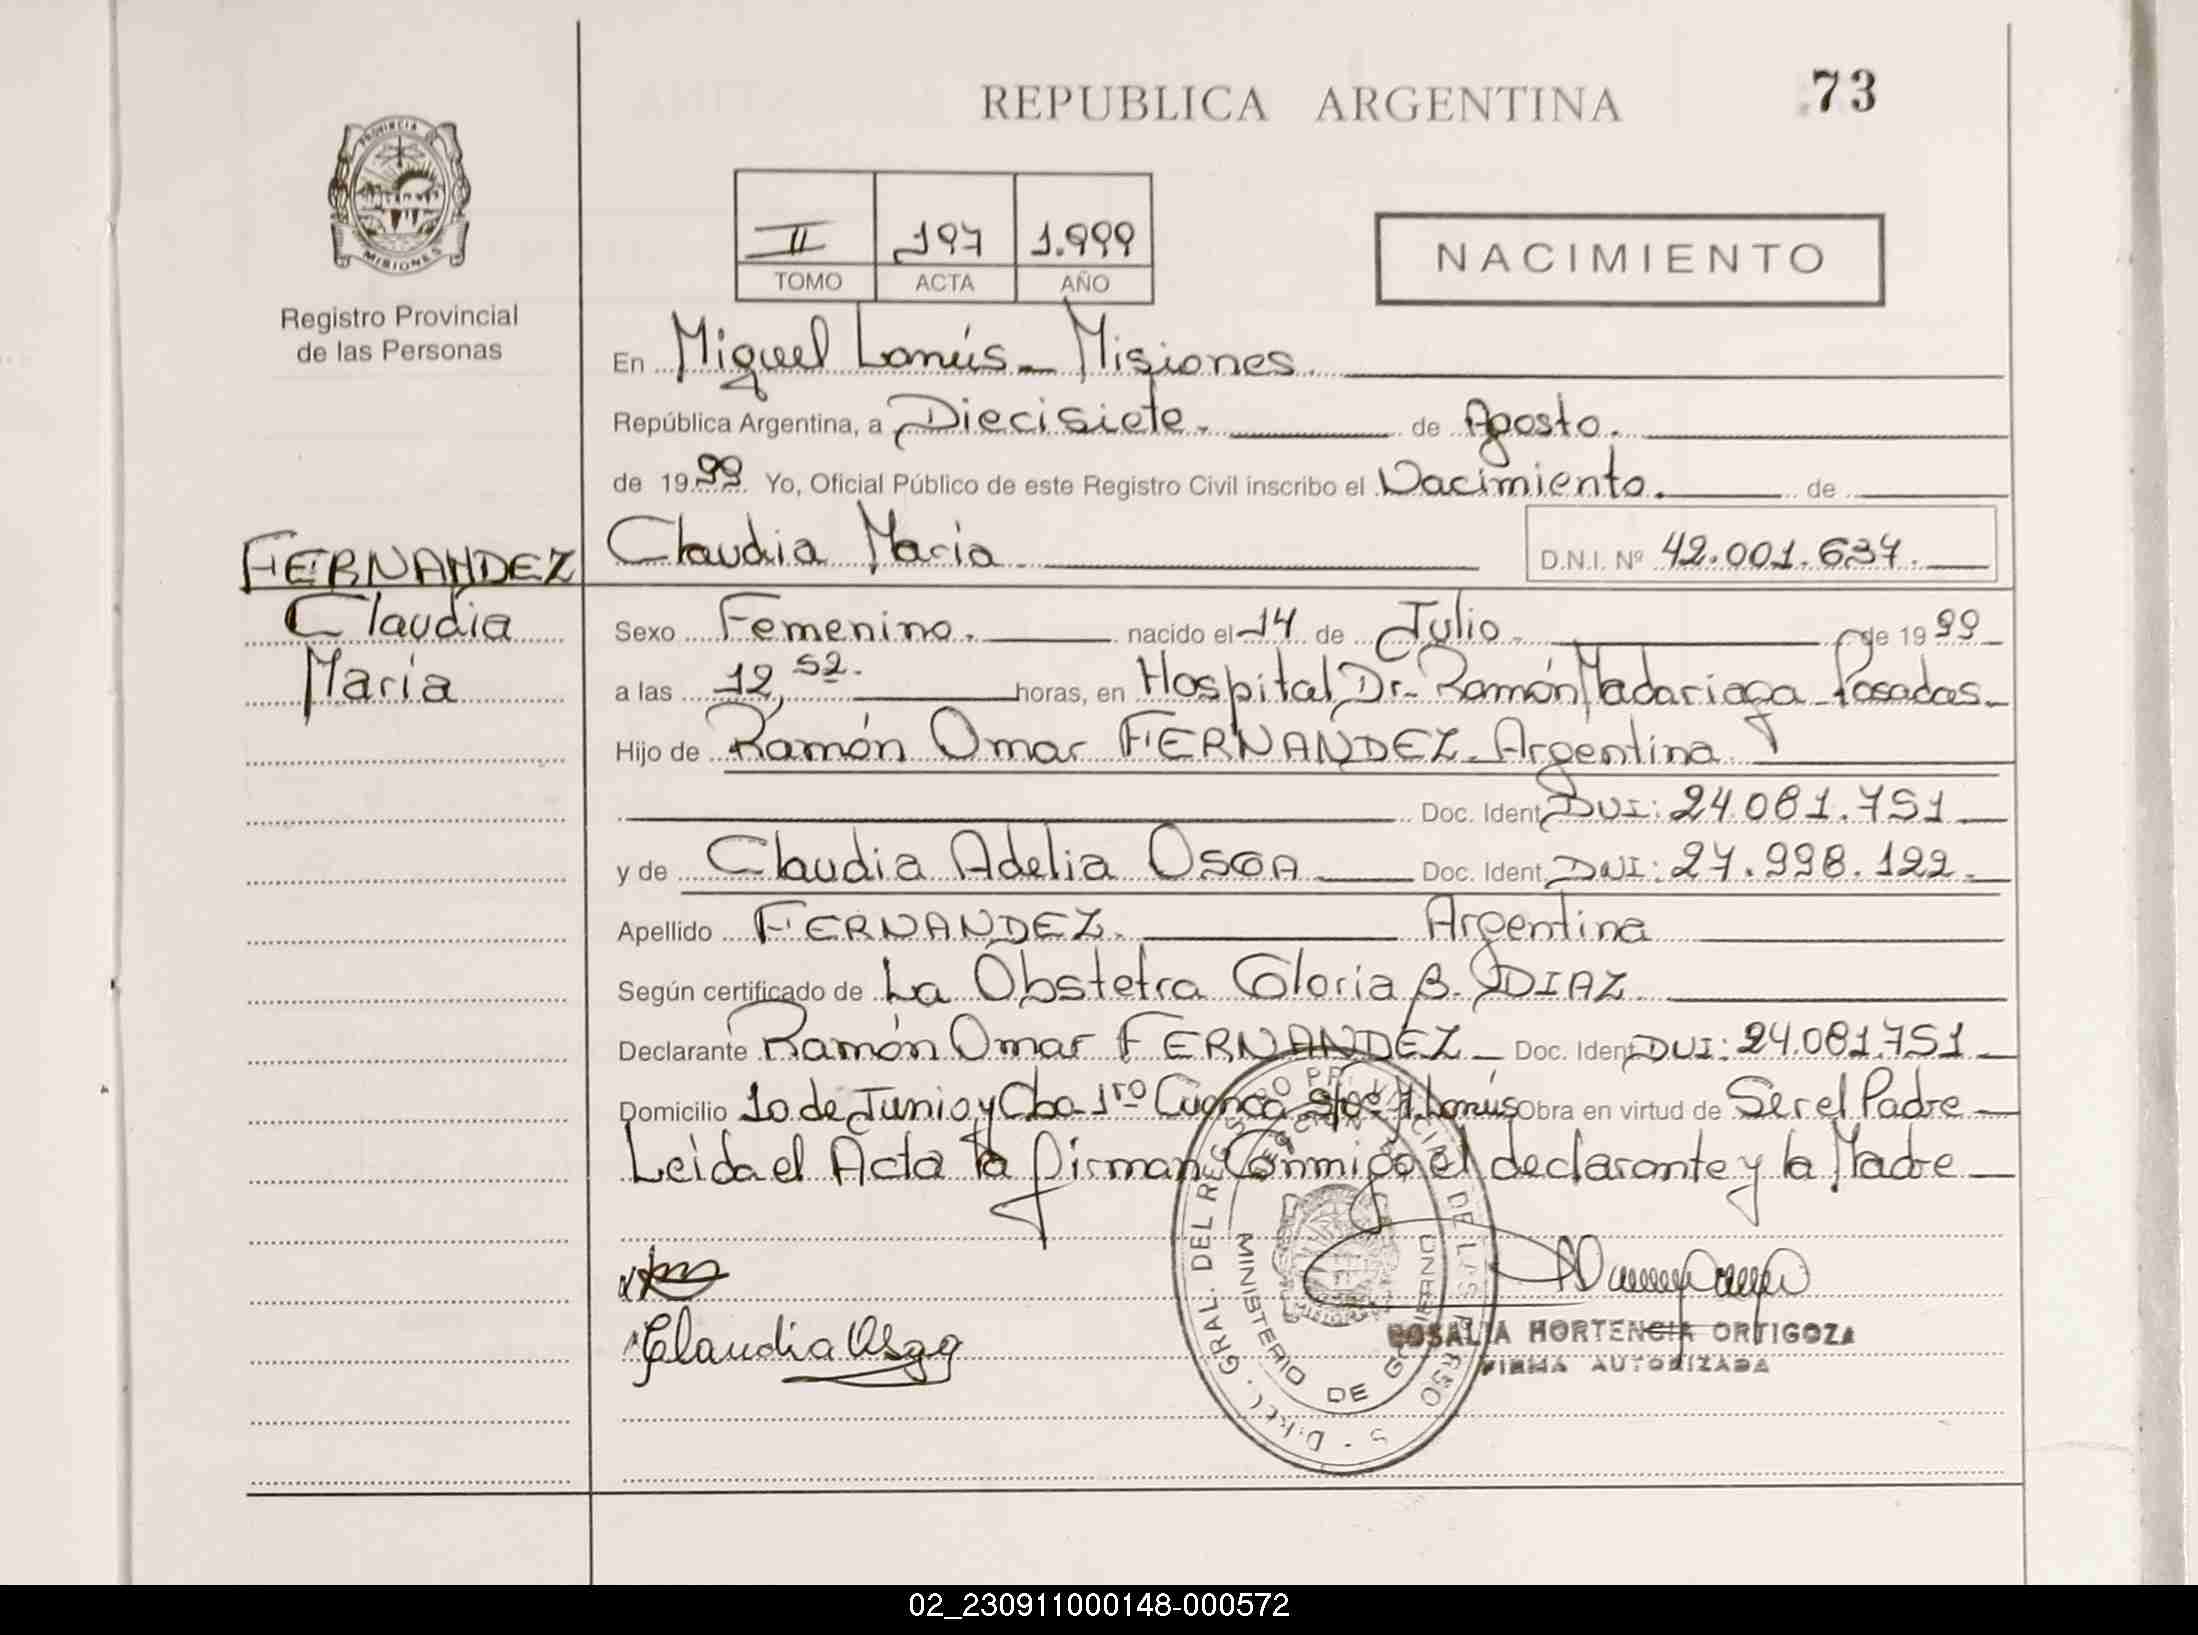 REPUBLICA ARGENTINA
73
PROVINCIA
MISIONES
Registro Provincial
de las Personas
II 197 1.999
TOMO ACTA AÑO
NACIMIENTO
En Miguel Lanús - Misiones.
República Argentina, a Diecisiete. de Agosto.
de 1999 Yo, Oficial Público de este Registro Civil inscribo el Nacimiento. de
FERNANDEZ
Claudia
María
Claudia María D.N.I. Nº 42.001.637.
Sexo Femenino. nacido el 14 de Julio. de 1999
a las 12,52. horas, en Hospital Dr. Ramón Madariaga - Posadas.
Hijo de Ramón Omar FERNANDEZ - Argentina
Doc. Ident. DUI: 24.081.751
y de Claudia Adelia Doc. Ident. DNI: 27.998.122.
Apellido FERNANDEZ. Argentina
Según certificado de La Obstetra Gloria B. DIAZ
Declarante Ramón Omar FERNANDEZ - Doc. Ident. DUI: 24.081.751
Domicilio 10 de Junio y Cbo. 1ro Cuenca M. Lanús Obra en virtud de Ser el Padre
Leída el Acta la firman Conmigo el declarante y la Madre
Claudia
DEL REGISTRO PROVINCIAL DE LAS PERSONAS
MINISTERIO DE GOBIERNO
ROSALIA HORTENCIA ORTIGOZA
FIRMA AUTORIZADA
02_230911000148-000572